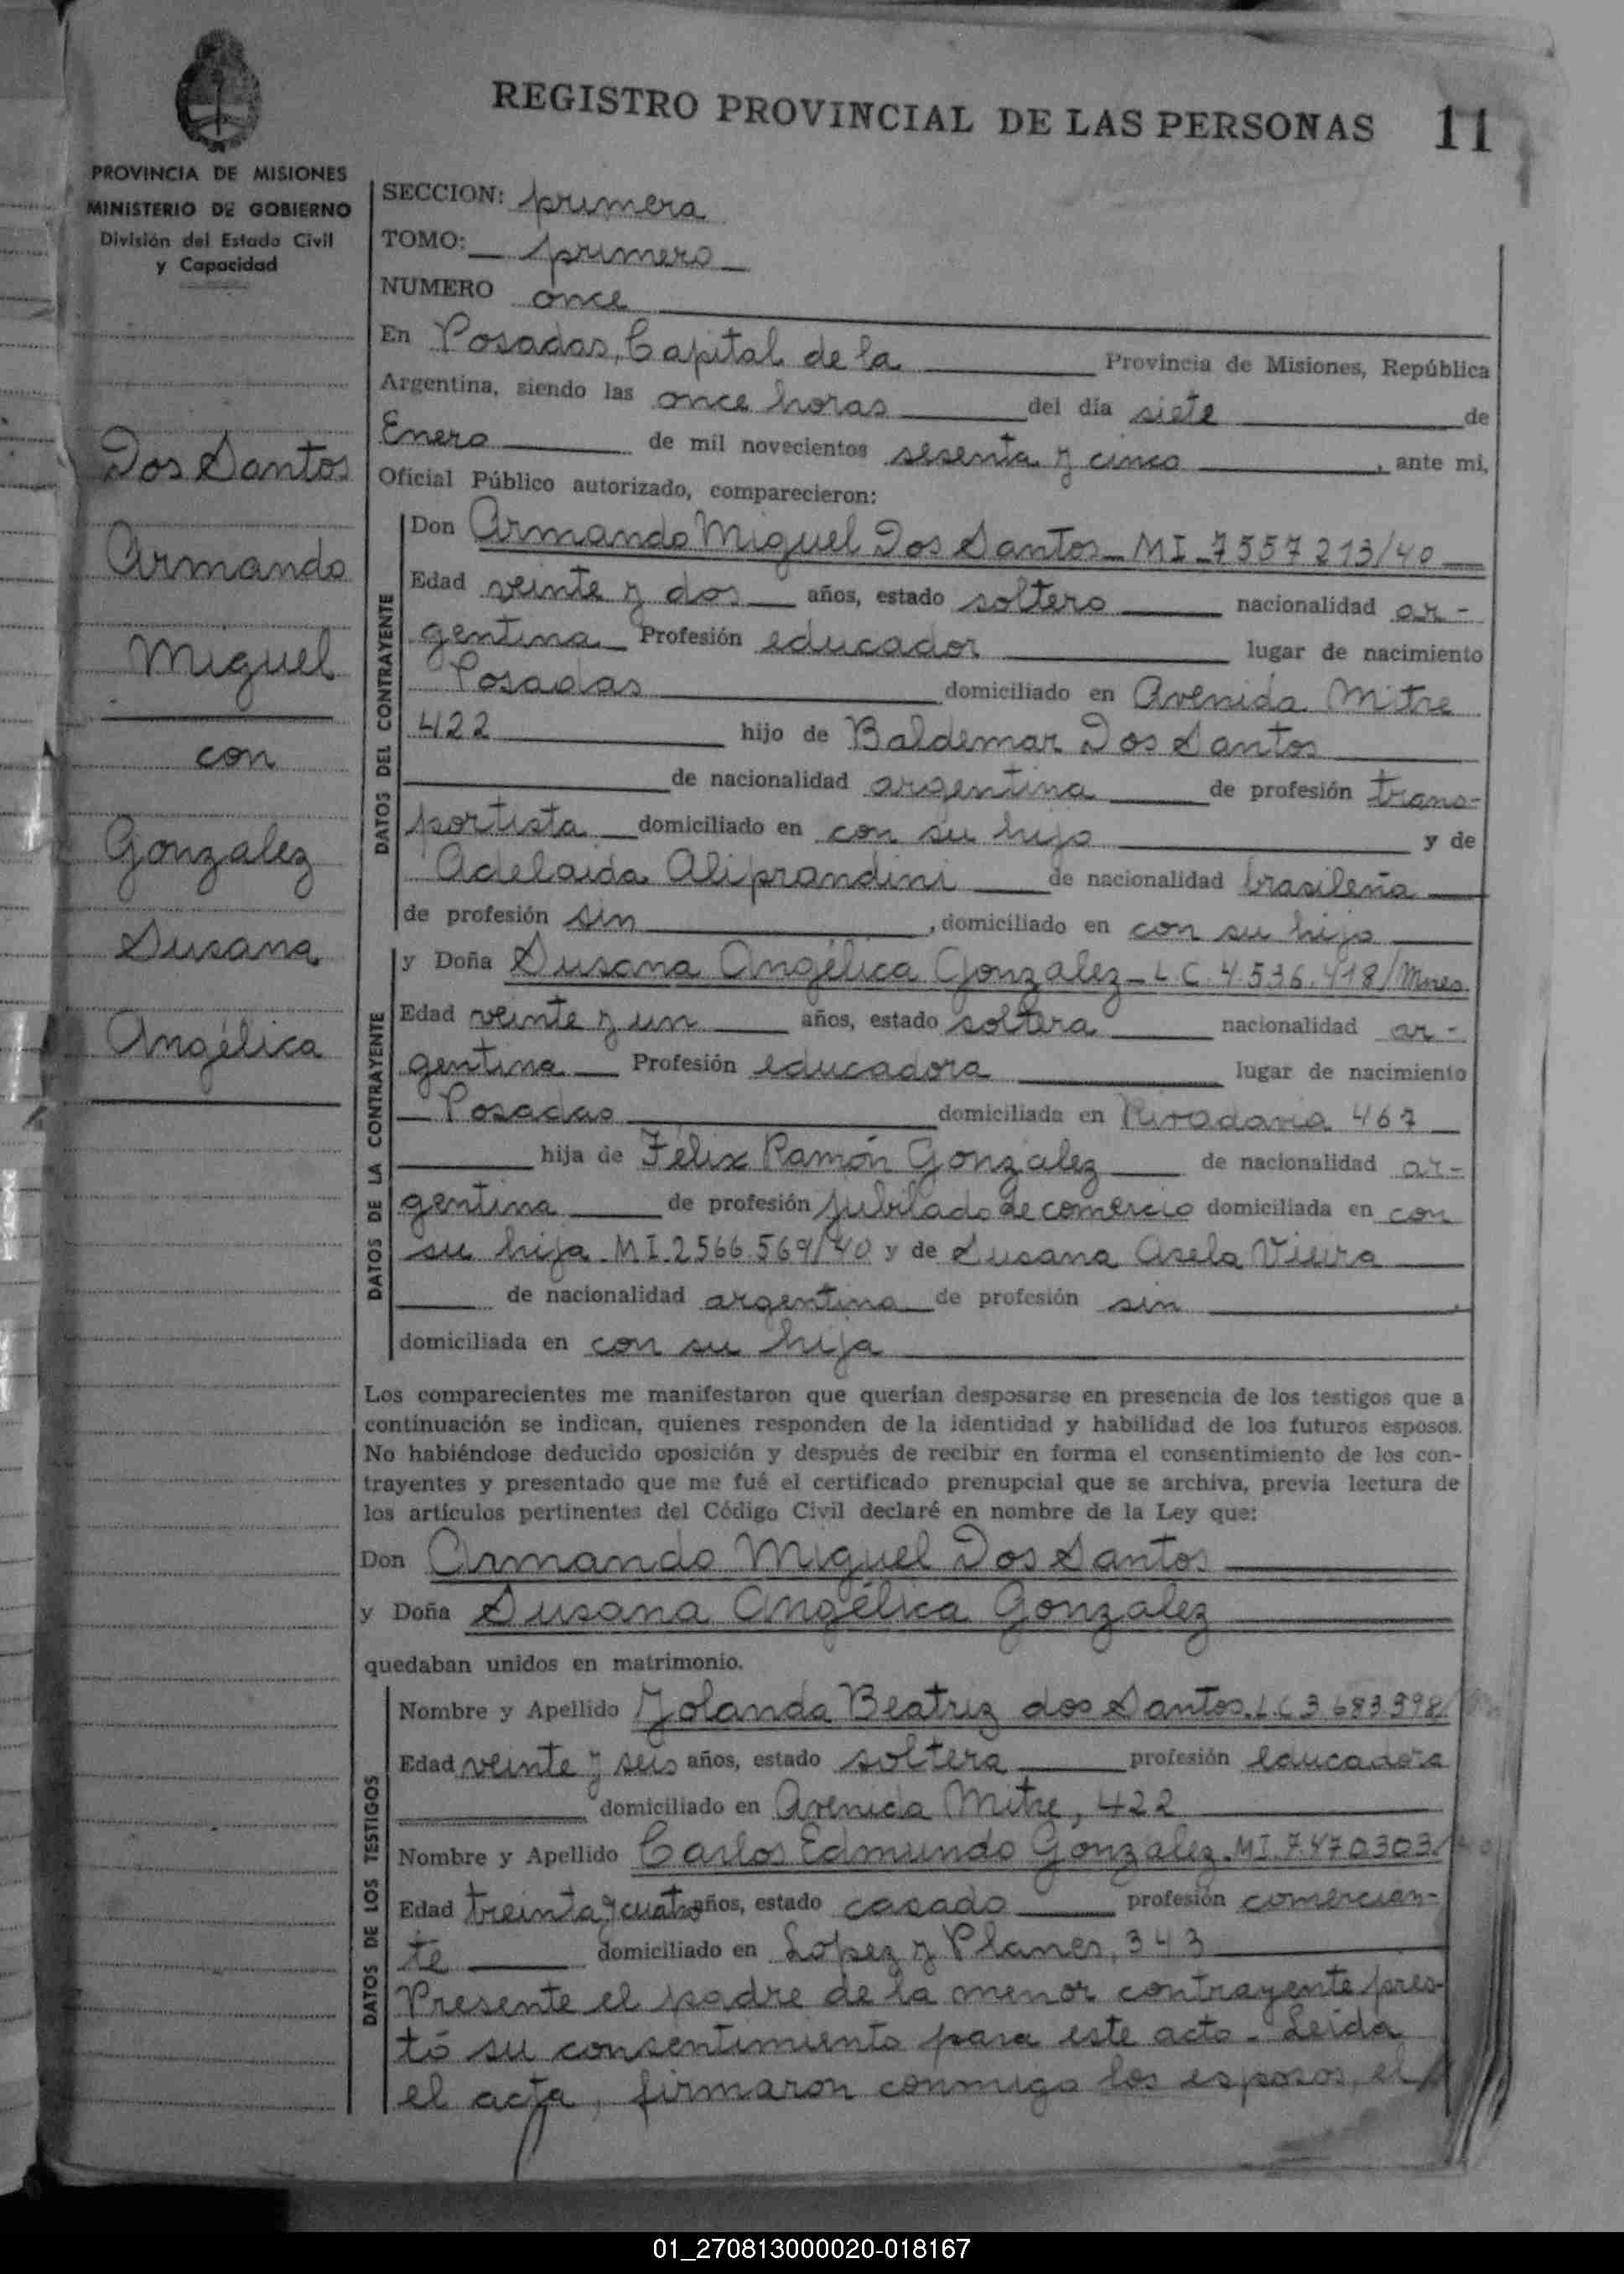 REGISTRO PROVINCIAL DE LAS PERSONAS 11
PROVINCIA DE MISIONES
MINISTERIO DE GOBIERNO
División del Estado Civil
y Capacidad
Dos Santos
Armando
Miguel
con
Gonzalez
Susana
Angélica
SECCION: primera
TOMO: primero
NUMERO once
En Posadas, Capital de la Provincia de Misiones, República
Argentina, siendo las once horas del día siete de
Enero de mil novecientos sesenta y cinco, ante mi,
Oficial Público autorizado, comparecieron:
DATOS DEL CONTRAYENTE
Don Armando Miguel Dos Santos - MI - 7557213/40
Edad veinte y dos años, estado soltero nacionalidad ar-
gentina Profesión educador lugar de nacimiento
Posadas domiciliado en Avenida Mitre
422 hijo de Baldemar Dos Santos
de nacionalidad argentina de profesión trans-
portista domiciliado en con su hijo y de
Adelaida Aliprandini de nacionalidad brasileña
de profesión sin, domiciliado en con su hijo
DATOS DE LA CONTRAYENTE
y Doña Susana Angélica Gonzalez - L.C. 4.536.418/Mnes.
Edad veinte y un años, estado soltera nacionalidad ar-
gentina Profesión educadora lugar de nacimiento
Posadas domiciliada en Rivadavia 467
hija de Félix Ramón Gonzalez de nacionalidad ar-
gentina de profesión jubilado de comercio domiciliada en con
su hija. MI. 2566.569/40 y de Susana Asela Vieira
de nacionalidad argentina de profesión sin,
domiciliada en con su hija
Los comparecientes me manifestaron que querían desposarse en presencia de los testigos que a
continuación se indican, quienes responden de la identidad y habilidad de los futuros esposos.
No habiéndose deducido oposición y después de recibir en forma el consentimiento de los con-
trayentes y presentado que me fué el certificado prenupcial que se archiva, previa lectura de
los artículos pertinentes del Código Civil declaré en nombre de la Ley que:
Don Armando Miguel Dos Santos
y Doña Susana Angélica Gonzalez
quedaban unidos en matrimonio.
DATOS DE LOS TESTIGOS
Nombre y Apellido Yolanda Beatriz dos Santos. L.C 3.683.998/
Edad veinte y seis años, estado soltera profesión educadora
domiciliado en Avenida Mitre, 422
Nombre y Apellido Carlos Edmundo Gonzalez. MI. 7.470303/
Edad treinta y cuatro años, estado casado profesión comercian-
te domiciliado en Lopez y Planes, 343
Presente el padre de la menor contrayente pres-
tó su consentimiento para este acto. Leida
el acta, firmaron conmigo los esposos, el
01_270813000020-018167